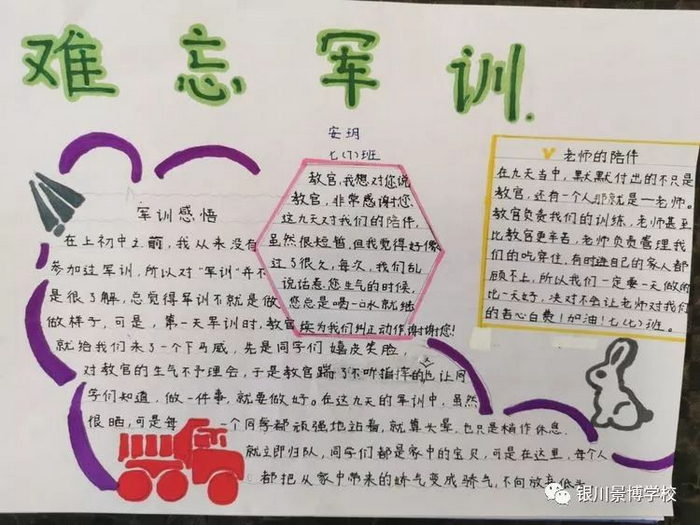 难忘军训.
安玥
七(7)班
军训感悟
在上初中之前,我从来没有
参加过军训,所以对“军训”并不
是很了解,总觉得军训不就是做
做样子,可是,第一天军训时,教官
就给我们来了一个下马威,先是同学们嬉皮笑脸,
对教官的生气不予理会,于是教官踹了不听指挥的也让同
学们知道,做一件事,就要做好。在这九天的军训中,虽然
很晒,可是每一个同学都顽强地站着,就算头晕,也只是稍作休息,
就立即归队,同学们都是家中的宝贝,可是在这里,每个人
都把从家中带来的娇气变成骄气,不向放弃低头
教官,我想对您说
教官,非常感谢您
这九天对我们的陪伴,
虽然很短暂,但我觉得好像
过了很久,每次,我们乱
说话惹您生气的时候,
您总是喝一口水就继
续为我们纠正动作谢谢您!
老师的陪伴
在九天当中,默默付出的不只是
教官,还有一个人那就是一老师。
教官负责我们的训练,老师甚至
比教官更辛苦,老师负责管理我
们的吃穿住,有时连自己的家人都
顾不上,所以我们一定要一天做的
比一天好,决对不会让老师对我们
的苦心白费!加油!七(7)班。
银川景博学校